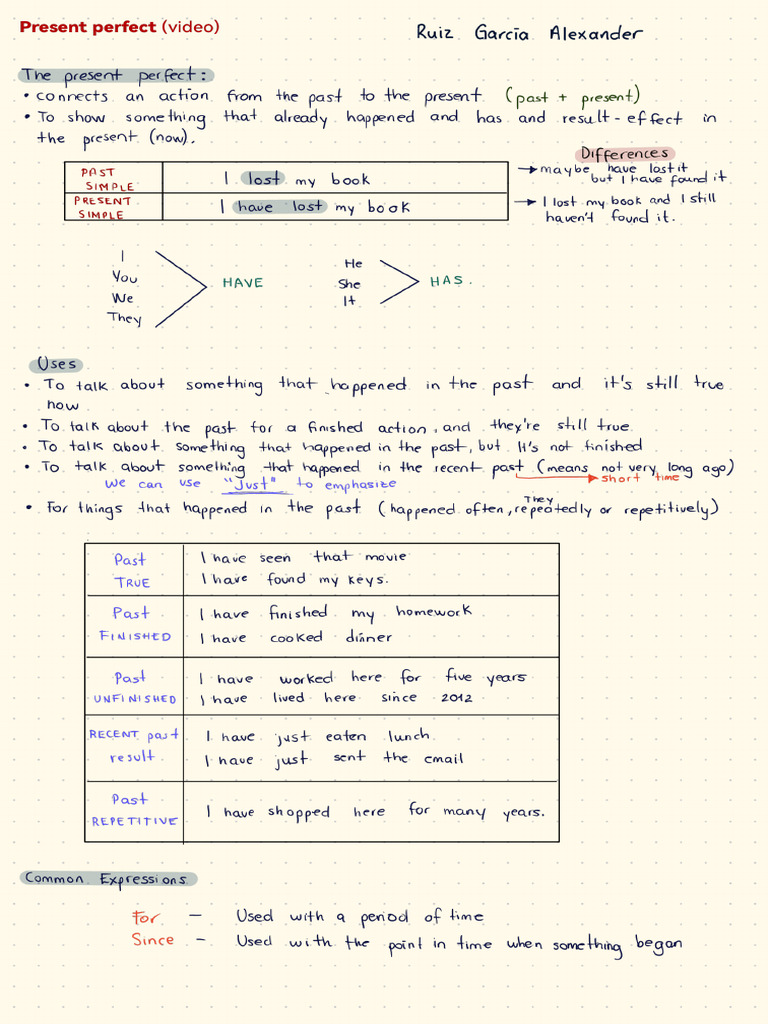 Present perfect (video)
Ruiz García Alexander
The present perfect:
• connects an action from the past to the present (past + present)
• To show something that already happened and has and result-effect in
the present (now).
Differences
PAST SIMPLE
I lost my book
→ maybe have lost it
but I have found it
PRESENT SIMPLE
I have lost my book
→ I lost my book and I still
haven't found it.
I
You
We
They
HAVE
He
She
It
HAS.
Uses
• To talk about something that happened in the past and it's still true
now
• To talk about the past for a finished action, and they're still true
• To talk about something that happened in the past, but It's not finished
• To talk about something that happened in the recent past (means not very long ago)
we can use "Just" to emphasize
short time
• For things that happened in the past (happened often, They repeatedly or repetitively)
Past
TRUE
I have seen that movie
I have found my keys.
Past
FINISHED
I have finished my homework
I have cooked dinner
Past
UNFINISHED
I have worked here for five years
I have lived here since 2012
RECENT past
result.
I have just eaten lunch.
I have just sent the email
Past
REPETITIVE
I have shopped here for many years.
Common Expressions
For – Used with a period of time
Since – Used with the point in time when something began